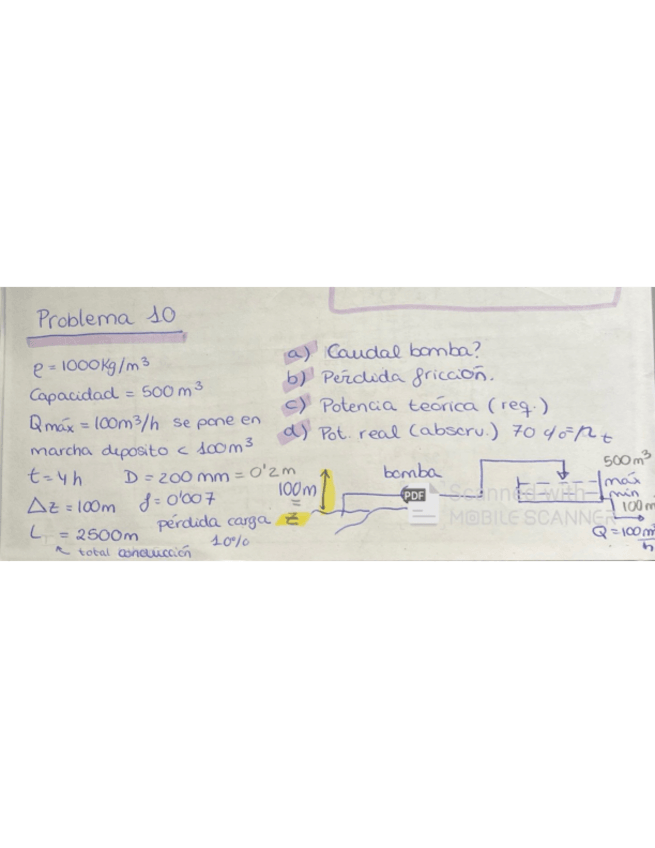 Problema 10
ρ = 1000Kg/m³
Capacidad = 500 m³
Qmáx = 100m³/h se pone en
marcha deposito < 100m³
t = 4h D = 200 mm = 0'2 m
Δz = 100m f = 0'007
L = 2500m pérdida carga
total conducción 10%
a) Caudal bomba?
b) Pérdida fricción.
c) Potencia teórica (req.)
d) Pot. real (absorv.) 70 % =
bomba
100m
z
500m³
máx
min
100m
Q = 100m³/h
PDF
Scanned with
MOBILE SCANNER